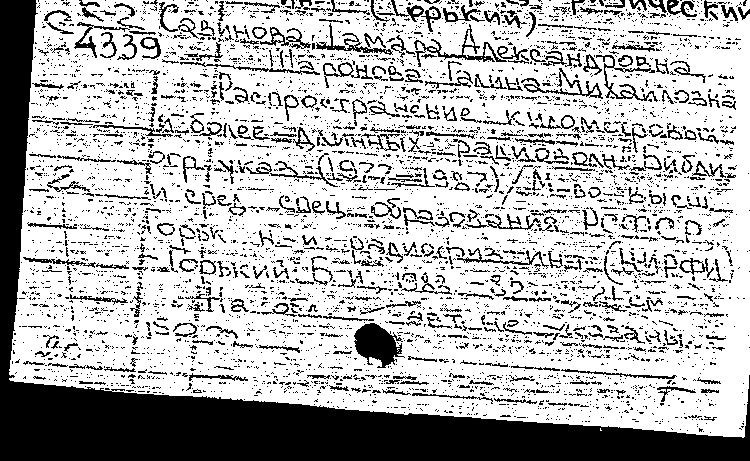 (Горький)
С К-2
4339
Савинова, Тамара Александровна,
Шаронова, Галина Михайловна
Распространение километровых
и более длинных радиоволн: Библи-
огр. указ. (1977-1982) / М-во высш.
и сред. спец. образования РСФСР,
Горьк. н.-и. радиофиз. ин-т (НИРФИ)
- Горький: Б.и., 1983 21 см
На обл. авт. не указаны.
150 т
2